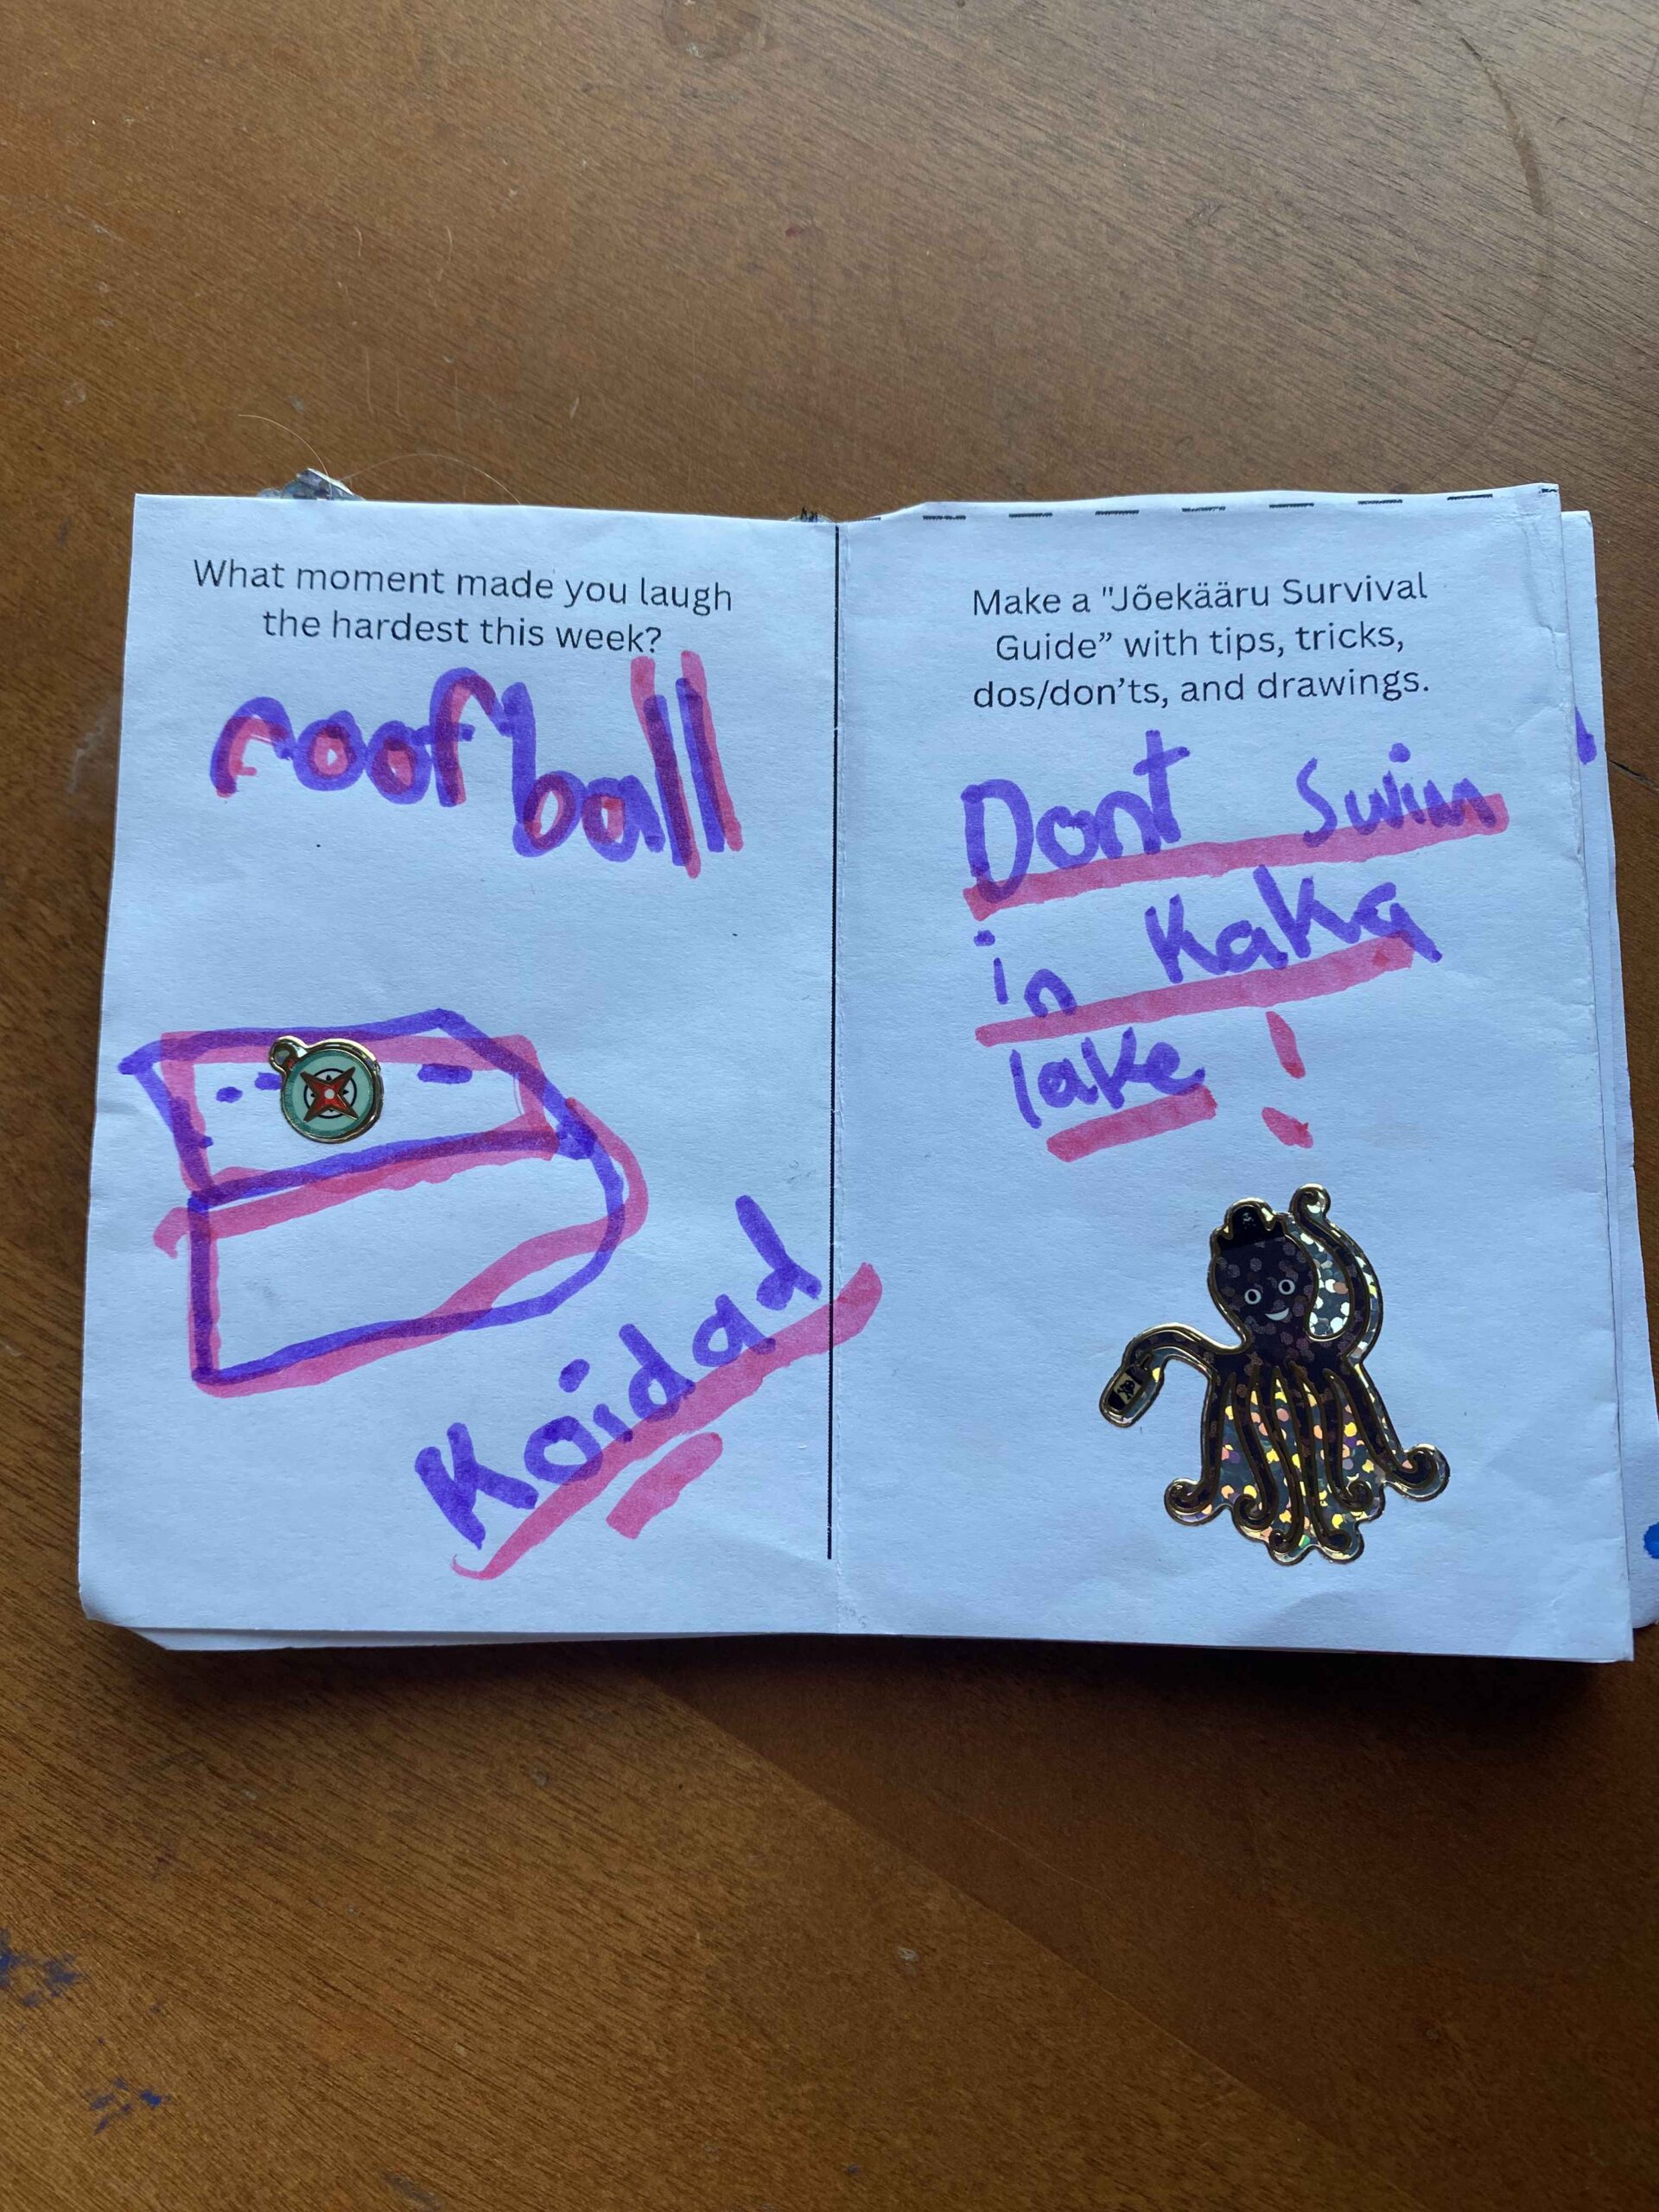 What moment made you laugh
the hardest this week?
roofball
Koidad
Make a "Jõekääru Survival
Guide” with tips, tricks,
dos/don’ts, and drawings.
Dont swim
in Kaka
lake !